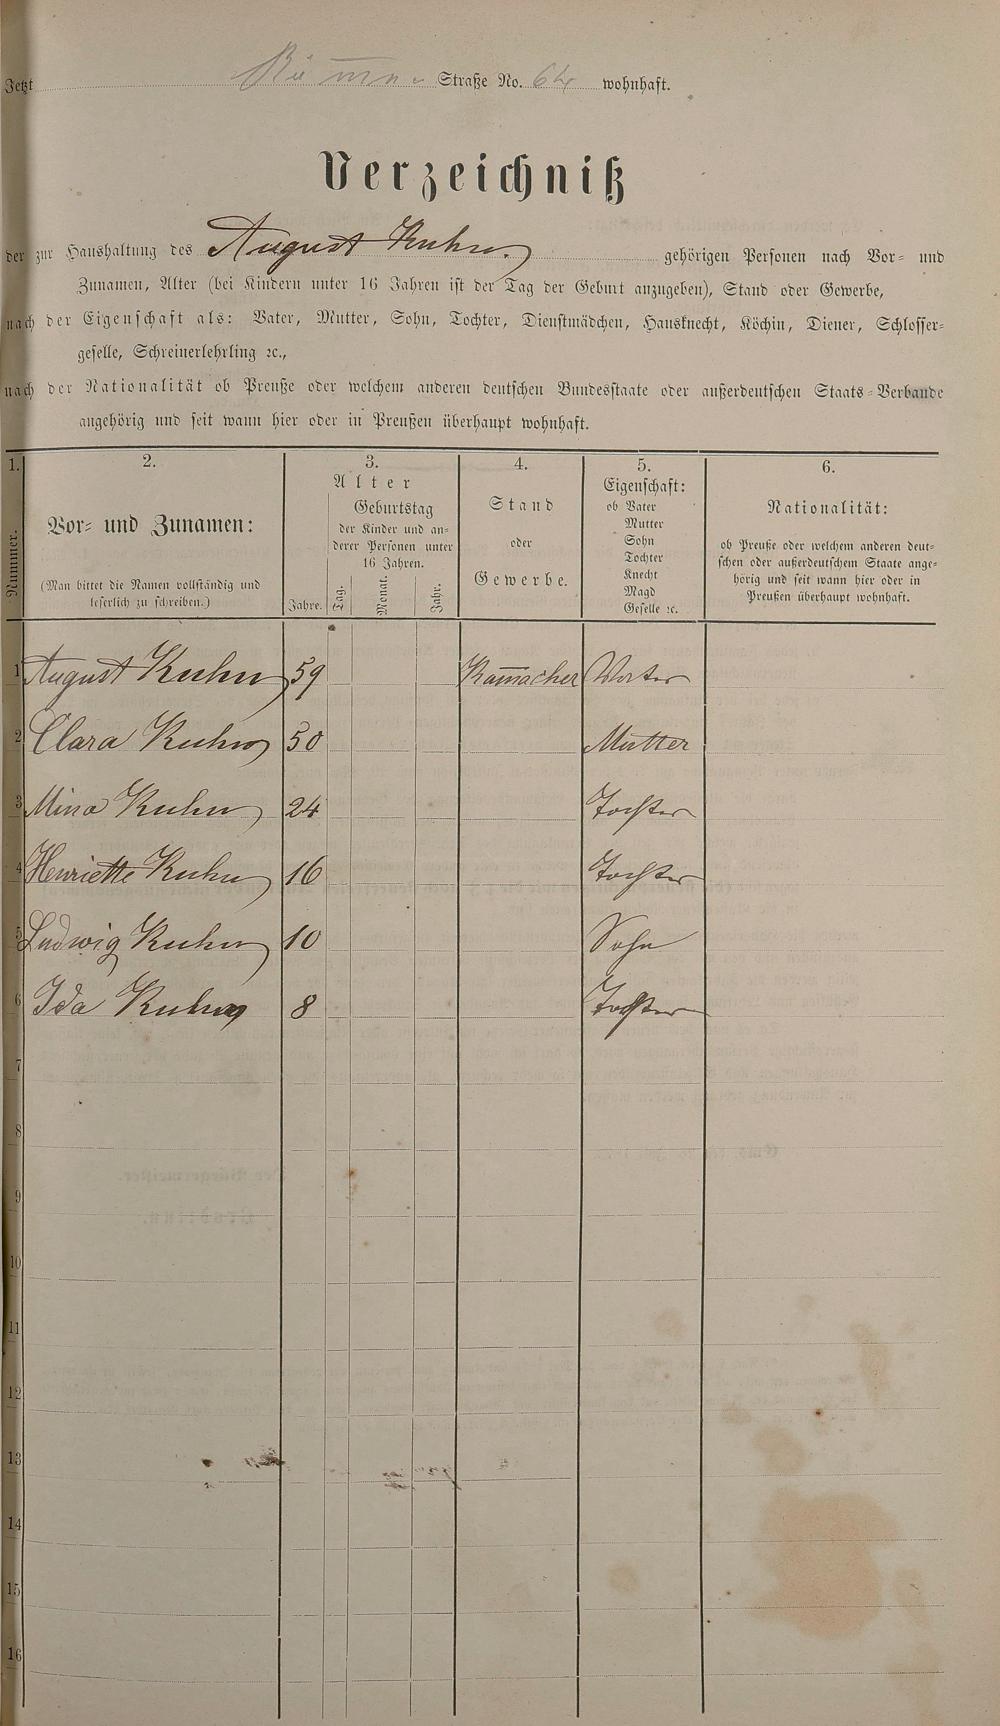 Jetzt Straße No. 64 wohnhaft.
Verzeichniß
der zur Haushaltung des August Kuhn. gehörigen Personen nach Vor- und
Zunamen, Alter (bei Kindern unter 16 Jahren ist der Tag der Geburt anzugeben), Stand oder Gewerbe,
nach der Eigenschaft als: Vater, Mutter, Sohn, Tochter, Dienstmädchen, Hausknecht, Köchin, Diener, Schlosser-
geselle, Schreinerlehrling ꝛc.,
nach der Nationalität ob Preuße oder welchem anderen deutschen Bundesstaate oder außerdeutschen Staats-Verbande
angehörig und seit wann hier oder in Preußen überhaupt wohnhaft.
1.
Nummer.
2.
Vor- und Zunamen:
(Man bittet die Namen vollständig und
leserlich zu schreiben.)
3.
Alter
Geburtstag
der Kinder und an-
derer Personen unter
16 Jahren.
Jahre. Tag. Monat. Jahr.
4.
Stand
oder
Gewerbe.
5.
Eigenschaft:
ob Vater
Mutter
Sohn
Tochter
Knecht
Magd
Geselle ꝛc.
6.
Nationalität:
ob Preuße oder welchem anderen deut-
schen oder außerdeutschem Staate ange-
hörig und seit wann hier oder in
Preußen überhaupt wohnhaft.
1 August Kuhn 59 Kammacher Vater
2 Clara Kuhn 50 Mutter
3 Mina Kuhn 24 Tochter
4 Henriette Kuhn 16 Tochter
5 Ludwig Kuhn 10 Sohn
6 Ida Kuhn 8 Tochter
7
8
9
10
11
12
13
14
15
16